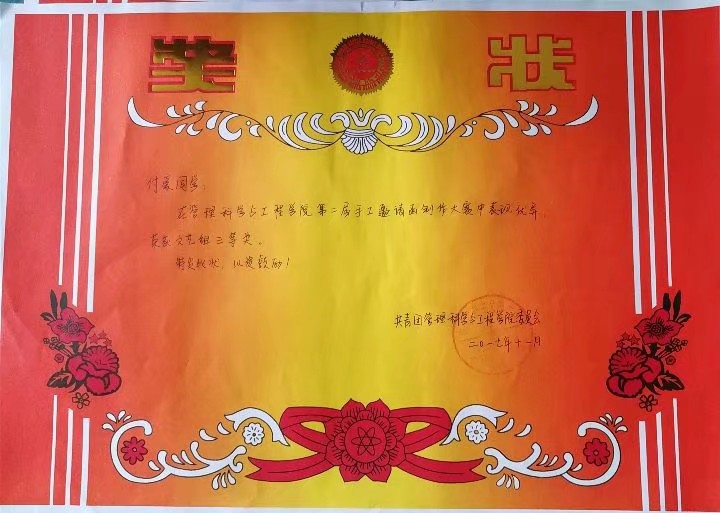 奖状
付爱同学:
在管理科学与工程学院第二届手工邀请函制作大赛中表现优异,
获家文艺组三等奖。
特发此状,以资鼓励!
共青团管理科学与工程学院委员会
二〇一七年十一月